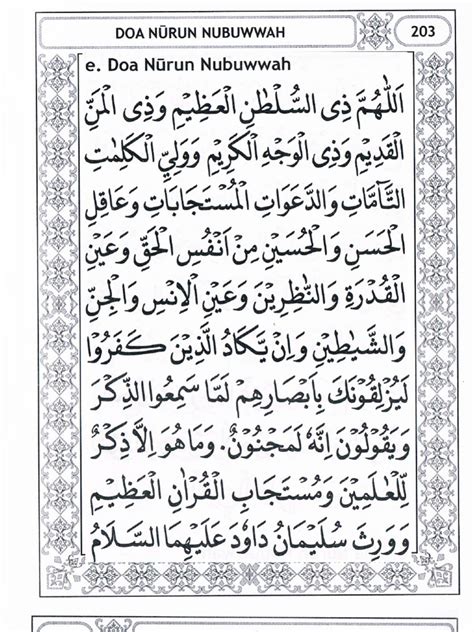 DOA NŪRUN NUBUWWAH
203
e. Doa Nūrun Nubuwwah
اَللّٰهُمَّ ذِى السُّلْطٰنِ الْعَظِيْمِ وَذِى الْمَنِّ
الْقَدِيْمِ وَذِى الْوَجْهِ الْكَرِيْمِ وَوَلِيِّ الْكَلِمٰتِ
التَّآمَّاتِ وَالدَّعَوَاتِ الْمُسْتَجَابَاتِ وَعَاقِلِ
الْحَسَنِ وَالْحُسَيْنِ مِنْ اَنْفُسِ الْحَقِّ وَعَيْنِ
الْقُدْرَةِ وَالنّٰظِرِيْنَ وَعَيْنِ الْاِنْسِ وَالْجِنِّ
وَالشَّيٰطِيْنِ وَاِنْ يَّكَادُ الَّذِيْنَ كَفَرُوْا
لَيُزْلِقُوْنَكَ بِاَبْصَارِهِمْ لَمَّا سَمِعُوا الذِّكْرَ
وَيَقُوْلُوْنَ اِنَّهٗ لَمَجْنُوْنٌ. وَمَا هُوَ اِلَّا ذِكْرٌ
لِّلْعٰلَمِيْنَ وَمُسْتَجَابِ الْقُرْاٰنِ الْعَظِيْمِ
وَوَرِثَ سُلَيْمَانُ دَاوٗدَ عَلَيْهِمَا السَّلَامُ